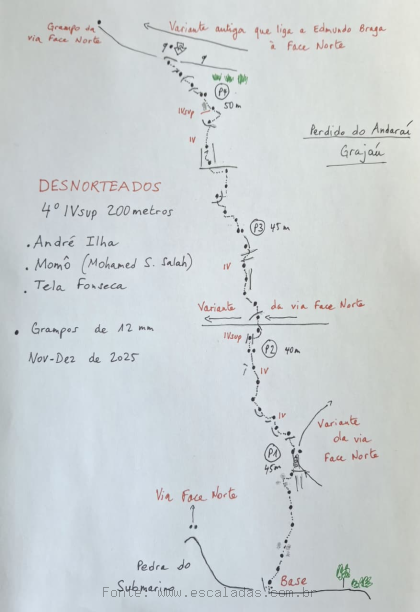 Grampo da
via Face Norte
Variante antiga que liga a Edmundo Braga
à Face Norte
P4
50m
IVsup
IV
Perdido do Andaraí
Grajaú
DESNORTEADOS
4º IVsup 200metros
. André Ilha
. Momô (Mohamed S. Salah)
. Tela Fonseca
• Grampos de 12 mm
Nov-Dez de 2025
P3 45m
IV
Variante da via Face Norte
IVsup
P2 40m
IV
IV
Variante
da via
Face Norte
P1
45m
Via Face Norte
Pedra do
Submarino
Base
Fonte: www.escaladas.com.br